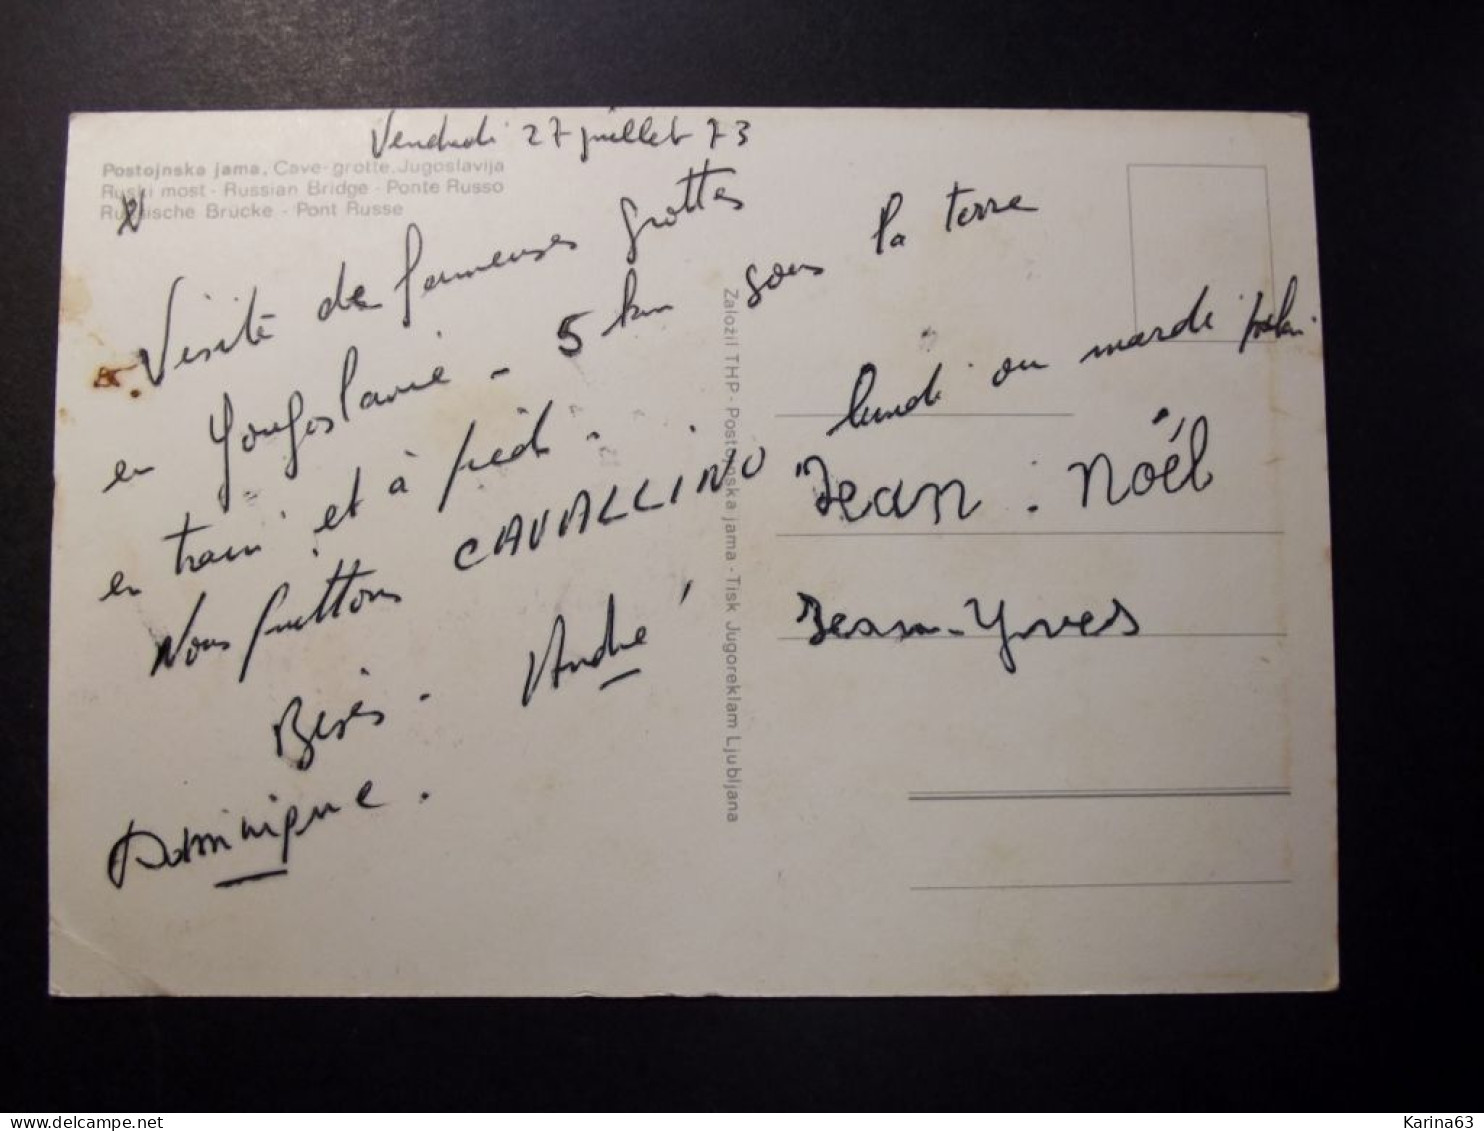 Vendredi 27 juillet 73
Postojnska jama, Cave-grotte, Jugoslavija
Ruski most - Russian Bridge - Ponte Russo
Russische Brücke - Pont Russe
Visite de fameuses grottes
en Yougoslavie - 5 km sous la terre
en train et à pieds -
Nous quittons CAVALLINO lundi ou mardi
Bises - André
Dominique.
Založil THP - Postojnska jama - Tisk Jugoreklam Ljubljana
Jean-Noël
Jean-Yves
Karina63